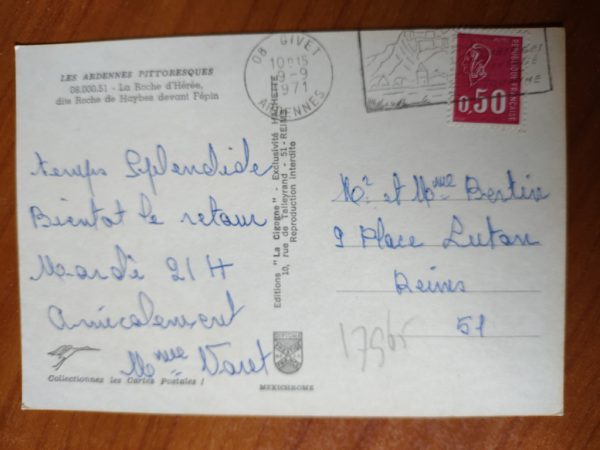 LES ARDENNES PITTORESQUES
08.000.51 - La Roche d'Hérée,
dite Roche de Haybes devant Fépin
temps splendide
Bientot le retour
Mardi 21 H
Amicalement
Mme Varet
Collectionnez les Cartes Postales !
Editions "La Cigogne" - Exclusivité HACHETTE
10, rue de Talleyrand - 51 - REIMS
Reproduction interdite
MEXICHROME
08 GIVET
10H15
9-9
1971
ARDENNES
REPUBLIQUE FRANÇAISE
0,50
Mr et Mme Bertin
9 Place Luton
Reims
51
17965